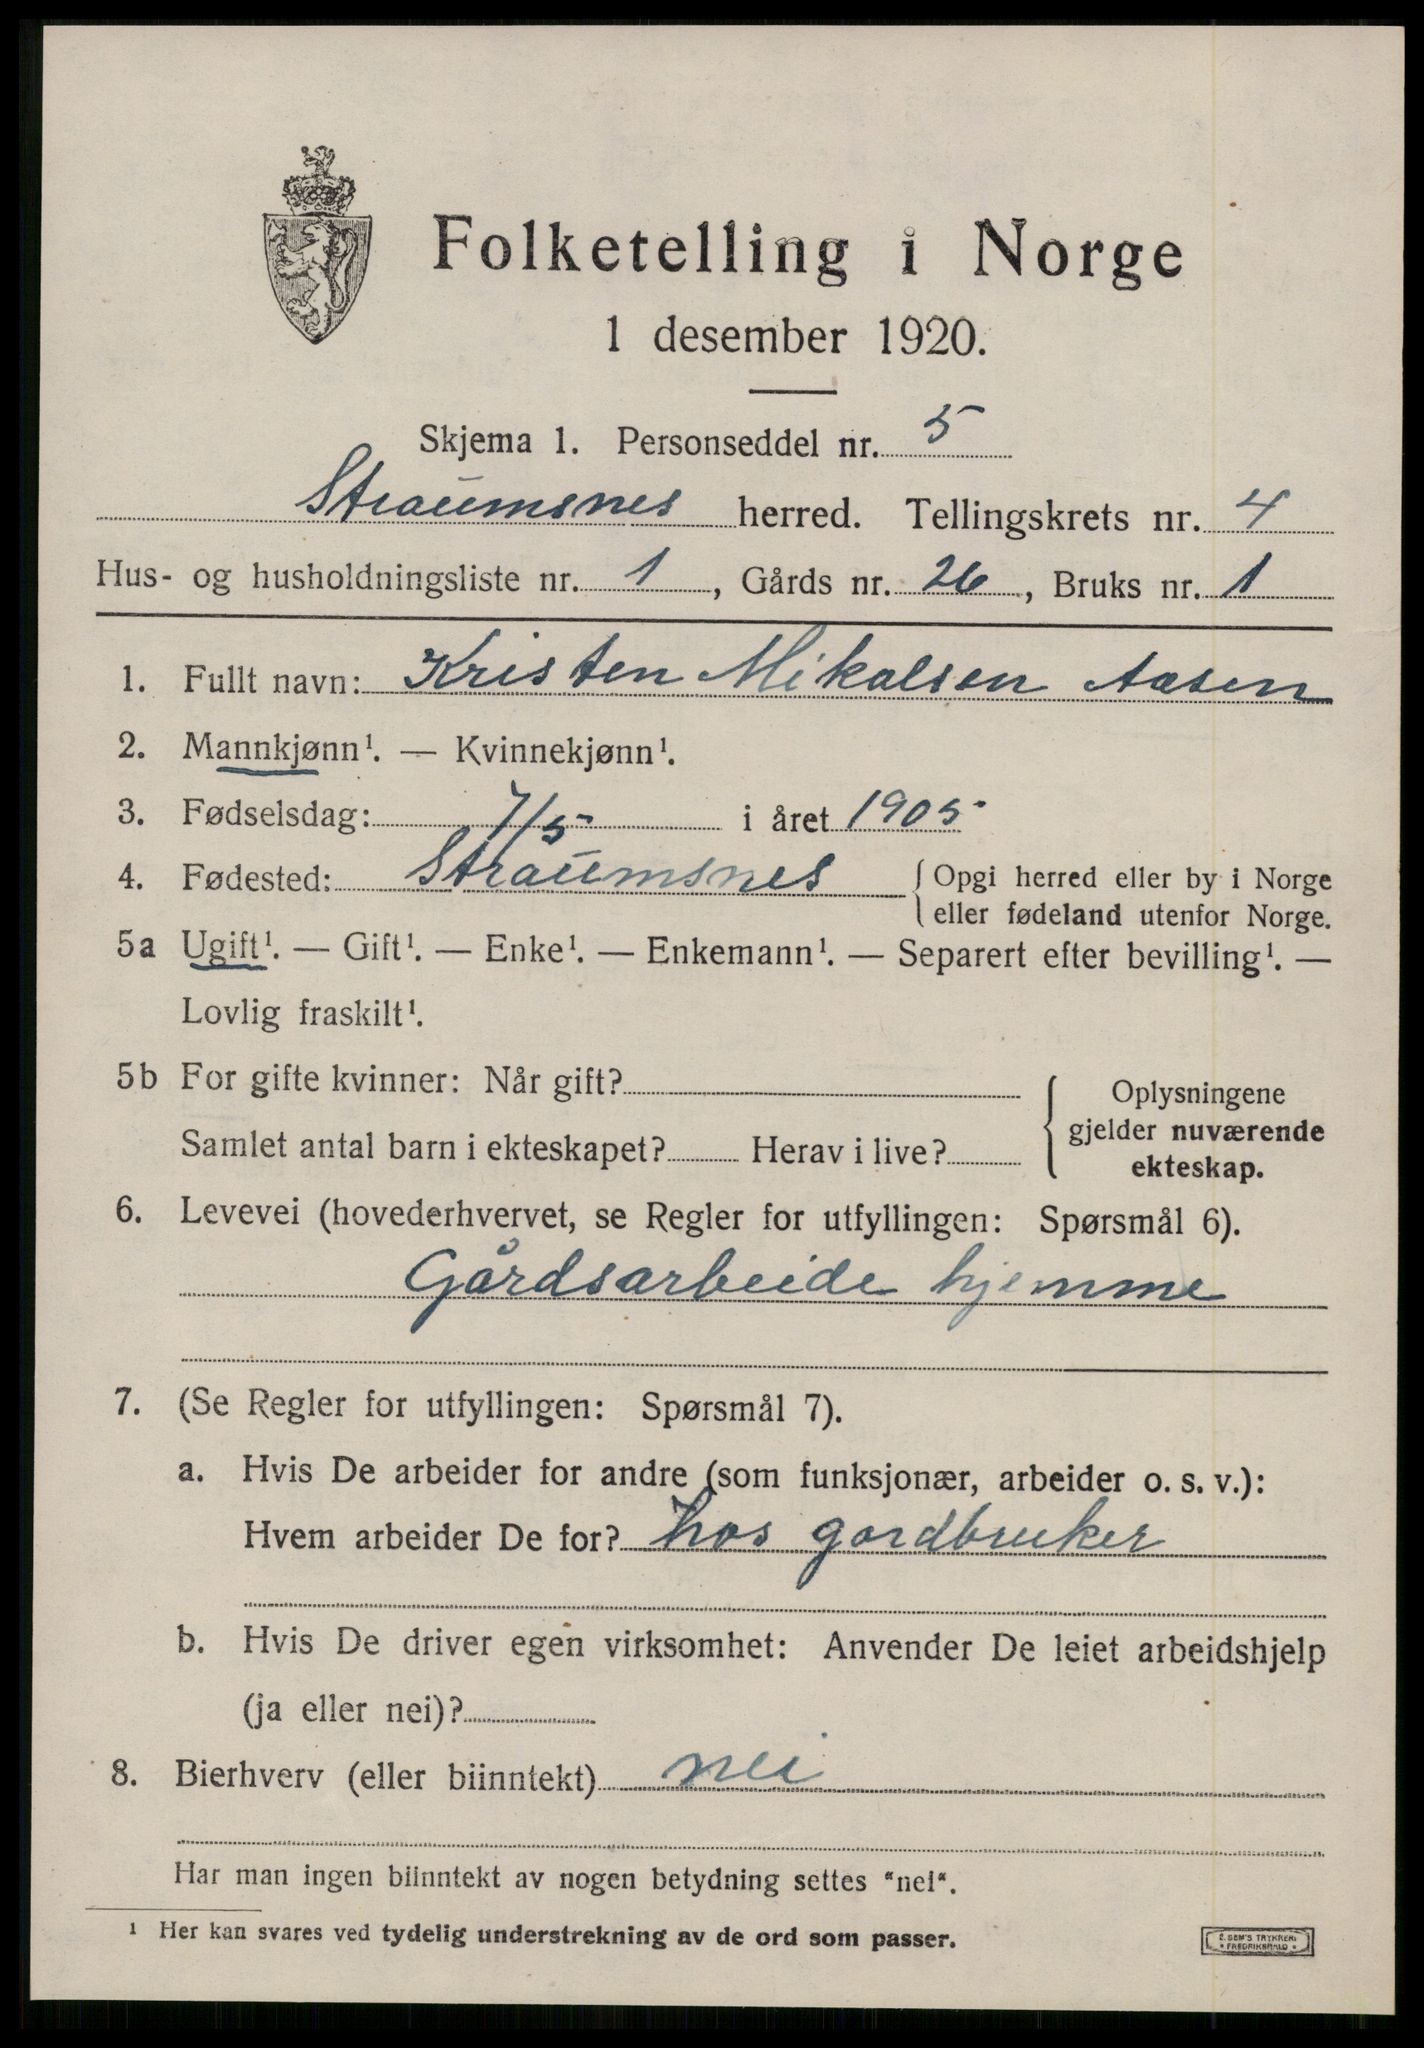 Folketelling i Norge
1 desember 1920.
Skjema 1. Personseddel nr. 5
Straumsnes herred. Tellingskrets nr. 4
Hus- og husholdningsliste nr. 1, Gårds nr. 26, Bruks nr. 1
1. Fullt navn: Kristen Mikalsen Aasen
2. Mannkjønn¹. — Kvinnekjønn¹.
3. Fødselsdag: 7/5 i året 1905
4. Fødested: Straumsnes { Opgi herred eller by i Norge
eller fødeland utenfor Norge.
5a Ugift¹. — Gift¹. — Enke¹. — Enkemann¹. — Separert efter bevilling¹. —
Lovlig fraskilt¹.
5b For gifte kvinner: Når gift? { Oplysningene
gjelder nuværende
Samlet antal barn i ekteskapet? Herav i live?
ekteskap.
6. Levevei (hovederhvervet, se Regler for utfyllingen: Spørsmål 6).
Gårdsarbeide hjemme
7. (Se Regler for utfyllingen: Spørsmål 7).
a. Hvis De arbeider for andre (som funksjonær, arbeider o. s. v.):
Hvem arbeider De for? hos gardbruker
b. Hvis De driver egen virksomhet: Anvender De leiet arbeidshjelp
(ja eller nei)?
8. Bierhverv (eller biinntekt) nei
Har man ingen biinntekt av nogen betydning settes "nei".
¹ Her kan svares ved tydelig understrekning av de ord som passer.
E. SEM'S TRYKKERI
FREDRIKSHALD